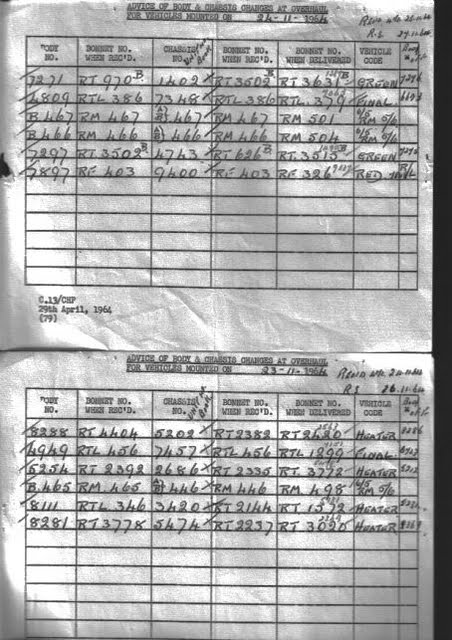 ADVICE OF BODY & CHASSIS CHANGES AT OVERHAUL
FOR VEHICLES MOUNTED ON 24-11-1964
BODY NO. BONNET NO. WHEN REC'D. CHASSIS NO. BONNET NO. WHEN REC'D. BONNET NO. WHEN DELIVERED VEHICLE CODE
7271 RT 970 B 1402 RT 3502 B RT 3631 B GREEN
4809 RTL 386 7348 RTL 386 RTL 379 FINAL
B.467 RM 467 467 RM 467 RM 501 RM 5/6
B.466 RM 466 466 RM 466 RM 504 RM 5/6
7297 RT 3502 B 4743 RT 626 B RT 3515 B GREEN
7897 RF 403 9400 RF 403 RF 326 RED
C.13/CHP
29th April, 1964
(79)
ADVICE OF BODY & CHASSIS CHANGES AT OVERHAUL
FOR VEHICLES MOUNTED ON 23-11-1964
BODY NO. BONNET NO. WHEN REC'D. CHASSIS NO. BONNET NO. WHEN REC'D. BONNET NO. WHEN DELIVERED VEHICLE CODE
8288 RT 4404 5202 RT 2382 RT 2420 HEATER
4949 RTL 456 7457 RTL 456 RTL 1299 FINAL
5254 RT 2392 2686 RT 2335 RT 3772 HEATER
B.465 RM 465 446 RM 446 RM 498 RM 5/6
8111 RTL 346 3420 RT 2144 RT 1572 HEATER
8281 RT 3778 5474 RT 2237 RT 3020 HEATER